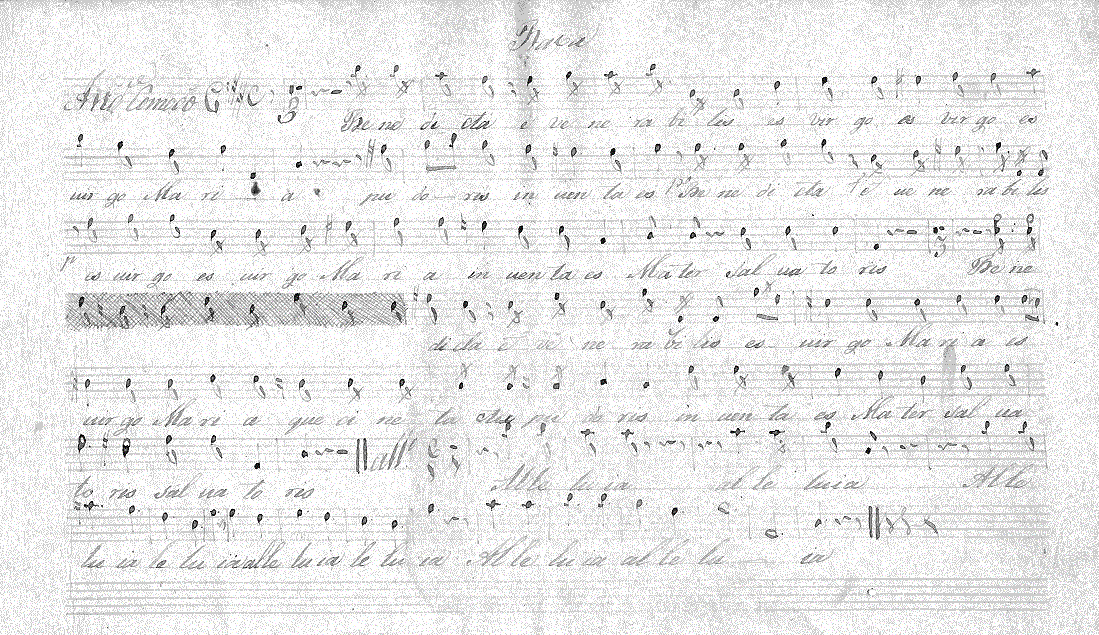 And.e Comodo
Be ne di cta e ve ne ra bi lis es vir go es vir go es
vir go Ma ri a pu do ris in ven ta es Be ne di cta e ve ne ra bi lis
es vir go es vir go Ma ri a in ven ta es Ma ter sal va to ris Be ne
di cta e ve ne ra bi lis es vir go Ma ri a es
vir go Ma ri a que ci ne ta ctu pu do ris in ven ta es Ma ter sal va
to ris sal va to ris all.o Al le lu ia al le luia Al le
lu ia le lu ia alle lu ia le lu ia Al le lu ia al le lu ia